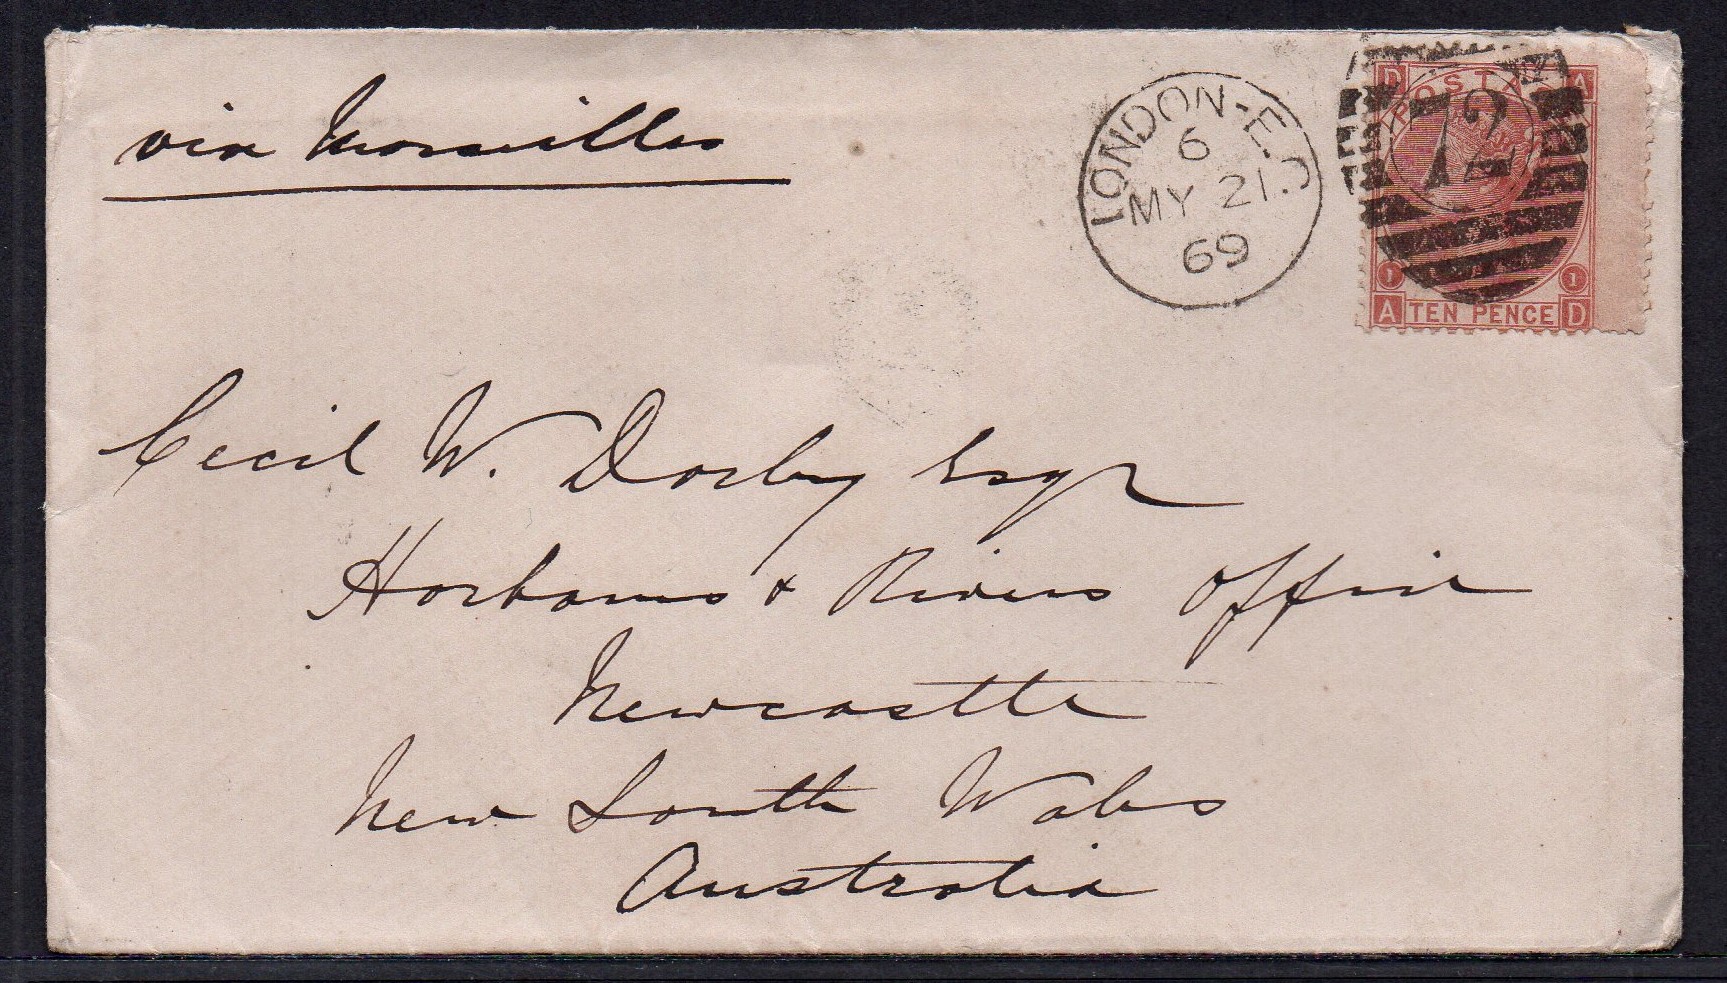 via Marseilles
LONDON-E.C
6
MY 21
69
72
D POSTAGE A
1 1
A TEN PENCE D
Cecil W. Darley Esqr
Harbours & Rivers Office
Newcastle
New South Wales
Australia